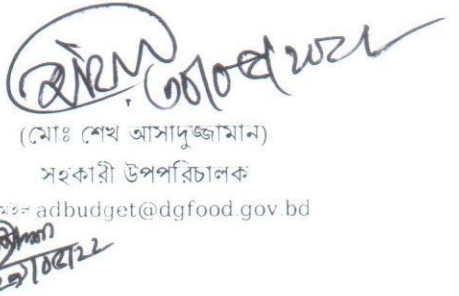 ৩০/০৫/২০২২
(মোঃ শেখ আসাদুজ্জামান)
সহকারী উপপরিচালক
adbudget@dgfood.gov.bd